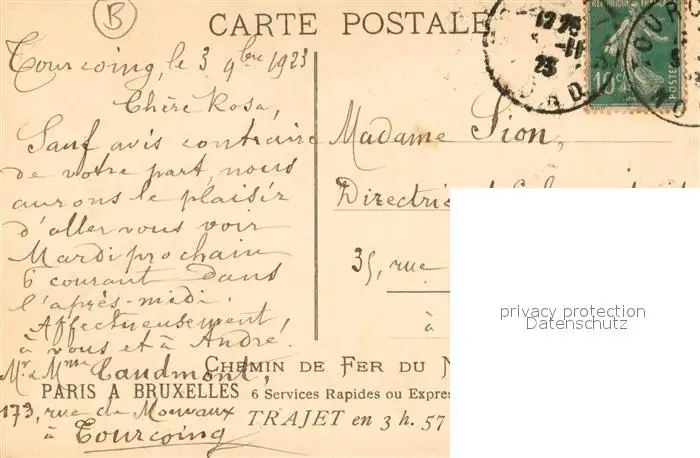 B
CARTE POSTALE
Tourcoing, le 3 9bre 1923
Chère Rosa,
Sauf avis contraire
de votre part, nous
aurons le plaisir
d'aller vous voir
Mardi prochain
6 courant dans
l'après-midi.
Affectueusement,
à vous et à André.
Mr & Mme Caudmont,
173, rue de Mouvaux
à Tourcoing
12
-11
23
10c
POSTES
Madame Sion,
Directrice
35, rue
à
CHEMIN DE FER DU N
PARIS A BRUXELLES 6 Services Rapides ou Expres
TRAJET en 3 h. 57
privacy protection
Datenschutz